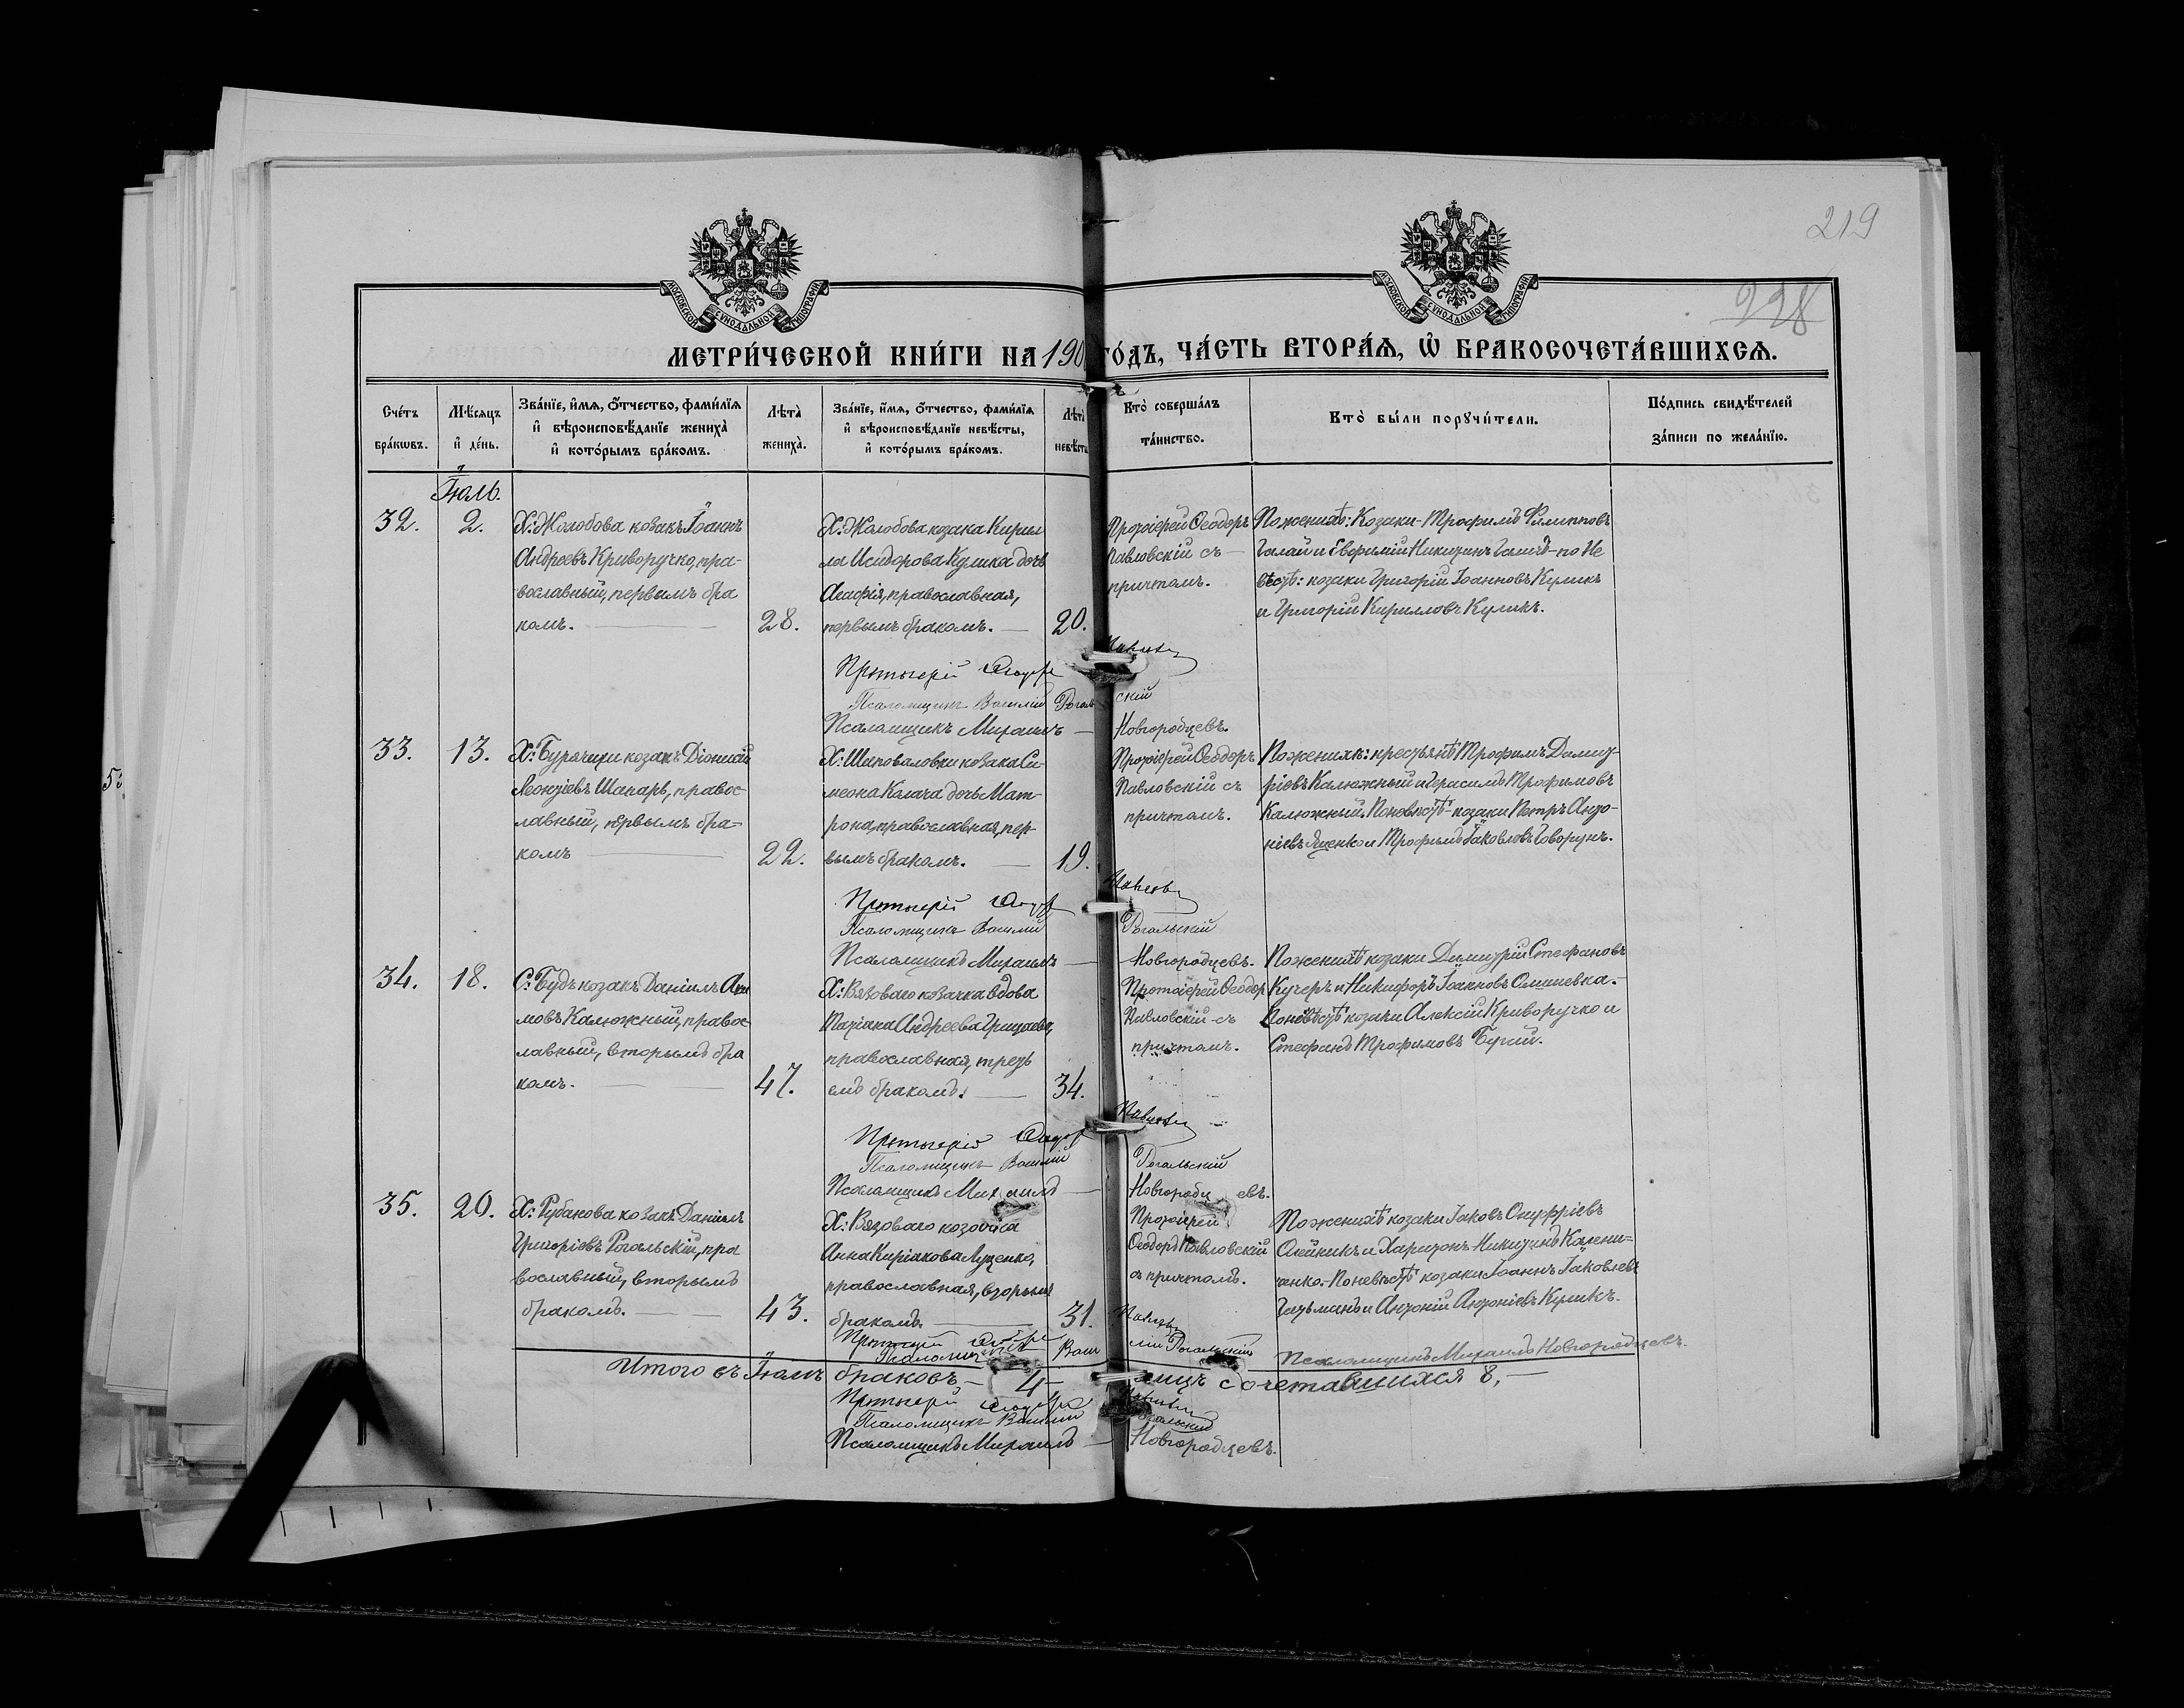 219
228
МОСКОВСКОЙ СѴНОДАЛЬНОЙ ТИПОГРАФІИ
МОСКОВСКОЙ СѴНОДАЛЬНОЙ ТИПОГРАФІИ
МЕТРИ́ЧЕСКОЙ КНИ́ГИ НА 190 ГО́ДЪ, ЧА́СТЬ ВТОРА́Ѧ, Ѡ҆ БРАКОСОЧЕТА́ВШИХСѦ.
Сче́тъ бра́кѡвъ.
Мѣ́сѧцъ и҆ де́нь.
Зва́нїе, и҆́мѧ, ѻ҆́тчество, фами́лїѧ и҆ вѣроисповѣ́данїе жениха̀ и҆ кото́рымъ бра́комъ.
Лѣта̀ жениха̀.
Зва́нїе, и҆́мѧ, ѻ҆́тчество, фами́лїѧ и҆ вѣроисповѣ́данїе невѣ́сты, и҆ кото́рымъ бра́комъ.
Лѣта̀ невѣ́сты
Кто̀ соверша́лъ та́инство.
Кто̀ бы́ли порꙋчи́тели.
По́дпись свидѣ́телей за́писи по жела́нїю.
Іюль.
32.
2.
Х: Жолобова козакъ Іоаннъ
Андреевъ Криворучко, пра-
вославный, первымъ бра
комъ.
28.
Х: Жолобова козака Кирил
ла Исидорова Кулика дочь
Агафія, православная,
первымъ бракомъ.
20.
Протоіерей Ѳеодоръ
Павловскій съ
причтомъ.
По женихѣ: Козаки Трофимъ Филипповъ
Галай и Евфимій Никитинъ Галай - по Не
вѣстѣ: козаки Григорій Іоанновъ Куликъ
и Григорій Кирилловъ Куликъ.
Протоіерей Ѳеодоръ Павловскій
Псаломщикъ Василій Рогальскій
Псаломщикъ Михаилъ Новгородцевъ.
33.
13.
Х: Бурячихи козакъ Діонисій
Леонтіевъ Шапаръ, правос-
лавный, первымъ бра-
комъ
22.
Х: Шаповаловки козака Си-
меона Калача дочь Мат-
рона, православная, пер-
вымъ бракомъ.
19.
Протоіерей Ѳеодоръ
Павловскій съ
причтомъ.
По женихѣ: крестьянѣ Трофимъ Димит-
ріевъ Калюжный и Герасимъ Трофимовъ
Калюжный. По невѣстѣ - козаки Петръ Анто-
ніевъ Яценко и Трофимъ Іаковлевъ Говорунъ.
Протоіерей Ѳеодоръ Павловскій
Псаломщикъ Василій Рогальскій
Псаломщикъ Михаилъ Новгородцевъ.
34.
18.
С: Будъ козакъ Даніилъ
мовъ Калюжный, правос-
лавный, вторымъ бра
комъ.
47.
Х: Вязоваго козачка вдова
Андреева
православная, треть
емъ бракомъ.
34.
Протоіерей Ѳеодоръ
Павловскій съ
причтомъ.
По женихѣ козаки Димитрій Стефановъ
Кучеръ и Никифоръ Іоанновъ
По невѣстѣ козаки Алексій Криворучко и
Стефанъ Трофимовъ
Протоіерей Ѳеодоръ Павловскій
Псаломщикъ Василій Рогальскій
Псаломщикъ Михаилъ Новгородцевъ.
35.
20.
Х: Рубанова козакъ Даніилъ
Григоріевъ Рогальскій, пра
вославный, вторымъ
бракомъ.
43.
Х: Вязоваго козачка
Анна Киріакова Луценко,
православная, вторымъ
бракомъ.
31.
Протоіерей
Ѳеодоръ Павловскій
съ причтомъ.
По женихѣ козаки Іаковъ Онуфріевъ
Олейникъ и Харитонъ Никитинъ Калени-
ченко. По невѣстѣ козаки Іоаннъ Іаковлевъ
Гатьманъ и Антоній Антоніевъ Куликъ.
Протоіерей Ѳеодоръ Павловскій
Псаломщикъ Василій Рогальскій
Псаломщикъ Михаилъ Новгородцевъ.
Итого въ Іюлѣ браковъ - 4 - лицъ сочетавшихся 8,
Протоіерей Ѳеодоръ Павловскій
Псаломщикъ Василій Рогальскій
Псаломщикъ Михаилъ Новгородцевъ.